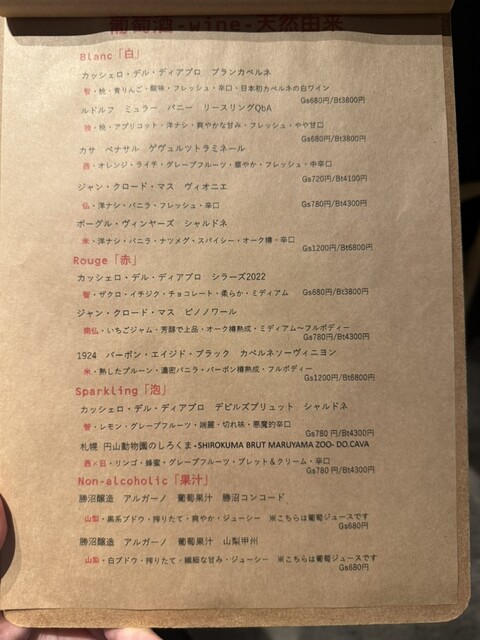 葡萄酒-wine-天然由来
Blanc「白」
カッシェロ・デル・ディアブロ ブランカベルネ
智・桃・青りんご・酸味・フレッシュ・辛口・日本初カベルネの白ワイン
Gs680円/Bt3800円
ルドルフ ミュラー バニー リースリングQbA
独・桃・アプリコット・洋ナシ・爽やかな甘み・フレッシュ・やや甘口
Gs680円/Bt3800円
カサ ベナサル ゲヴュルツトラミネール
西・オレンジ・ライチ・グレープフルーツ・華やか・フレッシュ・中辛口
Gs720円/Bt4100円
ジャン・クロード・マス ヴィオニエ
仏・洋ナシ・バニラ・フレッシュ・辛口
Gs780円/Bt4300円
ボーグル・ヴィンヤーズ シャルドネ
米・洋ナシ・バニラ・ナツメグ・スパイシー・オーク樽・辛口
Gs1200円/Bt6800円
Rouge「赤」
カッシェロ・デル・ディアブロ シラーズ2022
智・ザクロ・イチジク・チョコレート・柔らか・ミディアム Gs680円/Bt3800円
ジャン・クロード・マス ピノノワール
南仏・いちごジャム・芳醇で上品・オーク樽熟成・ミディアム～フルボディー
Gs780円/Bt4300円
1924 バーボン・エイジド・ブラック カベルネソーヴィニヨン
米・熟したプルーン・濃密バニラ・バーボン樽熟成・フルボディー
Gs1200円/Bt6800円
Sparkling「泡」
カッシェロ・デル・ディアブロ デビルズブリュット シャルドネ
智・レモン・グレープフルーツ・端麗・切れ味・悪魔的辛口
Gs780 円/Bt4300円
札幌 円山動物園のしろくま-SHIROKUMA BRUT MARUYAMA ZOO- DO.CAVA
西×日・リンゴ・蜂蜜・グレープフルーツ・ブレット＆クリーム・辛口
Gs780 円/Bt4300円
Non-alcoholic「果汁」
勝沼醸造 アルガーノ 葡萄果汁 勝沼コンコード
山梨・黒系ブドウ・搾りたて・爽やか・ジューシー ※こちらは葡萄ジュースです
Gs680円
勝沼醸造 アルガーノ 葡萄果汁 山梨甲州
山梨・白ブドウ・搾りたて・繊細な甘み・ジューシー ※こちらは葡萄ジュースです
Gs680円